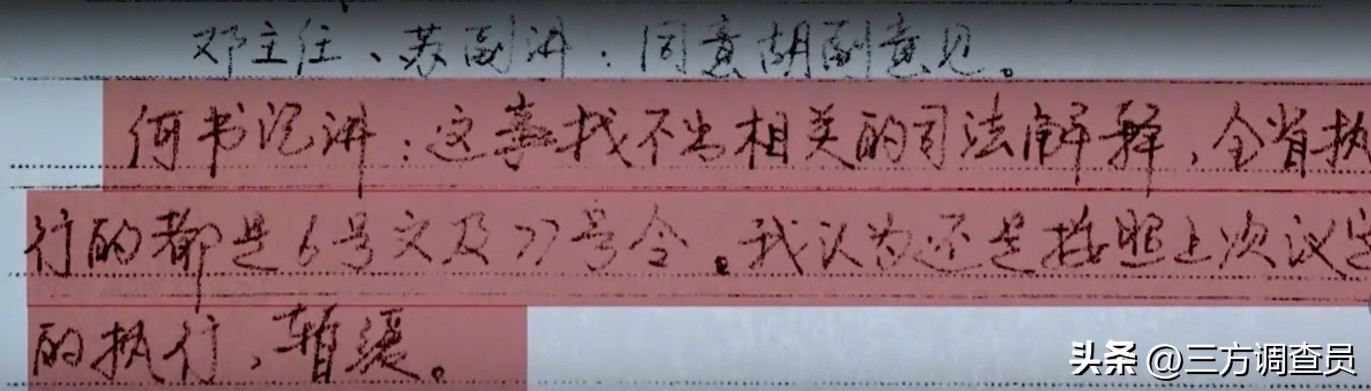 邓主任、苏副讲：同意胡副意见。
何书记讲：这事找不出相关的司法解释，全省执
行的都是6号文及77号令。我认为还是按照上次议定
的执行，暂缓。
头条 @三方调查员